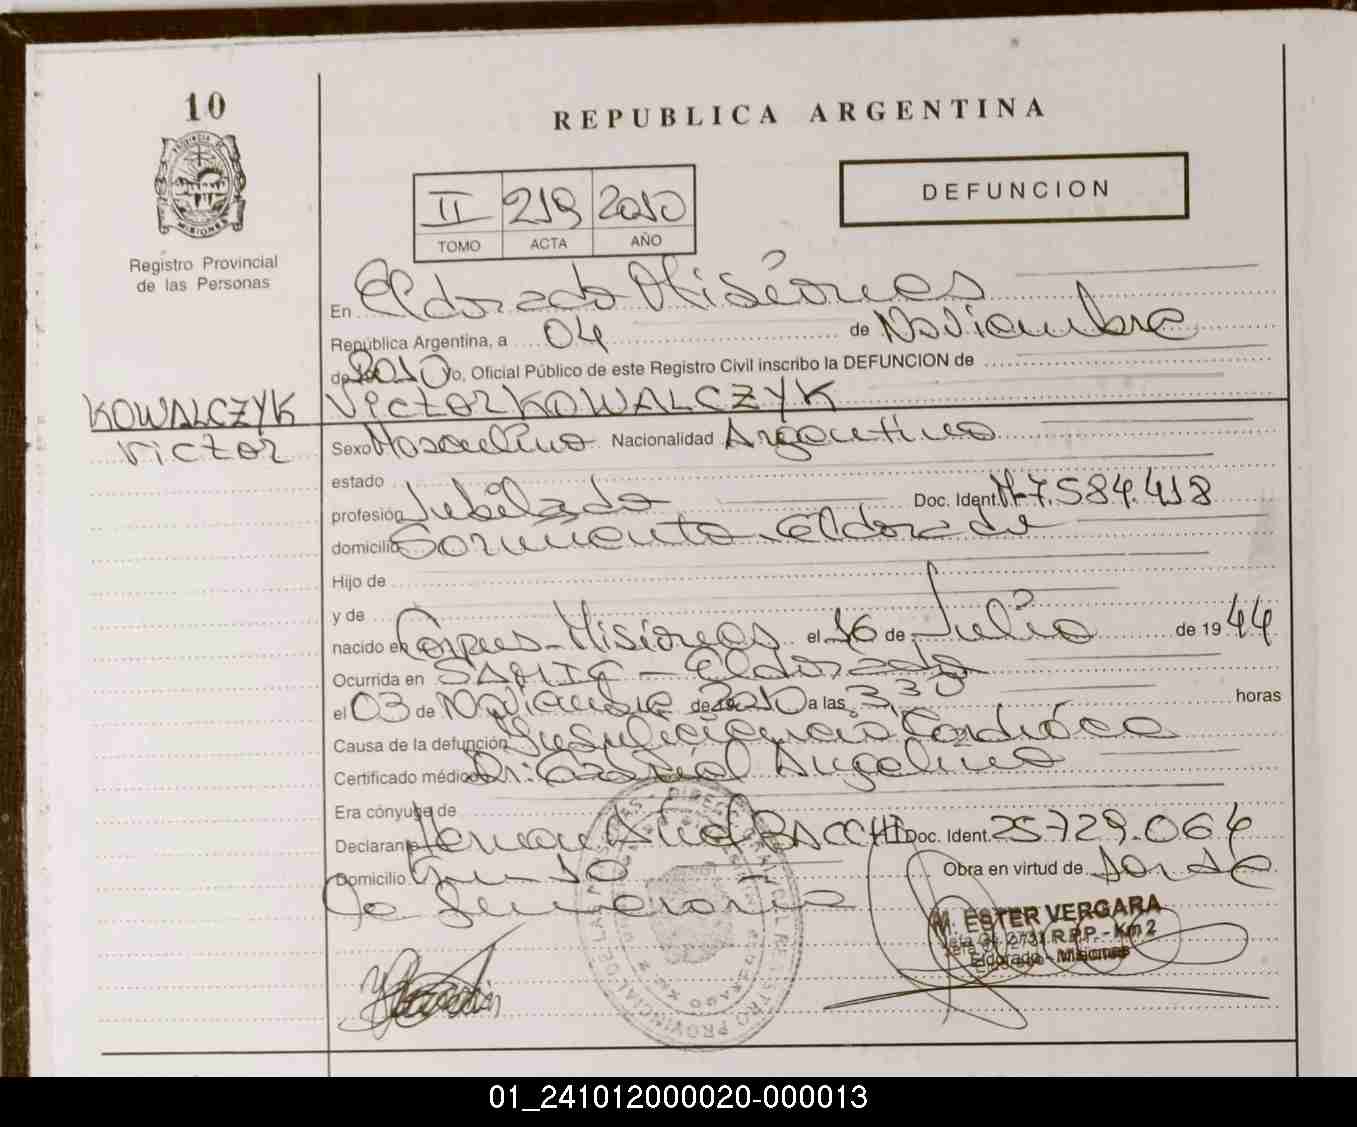 10
REPUBLICA ARGENTINA
PROVINCIA DE
MISIONES
Registro Provincial
de las Personas
II 219 2010
TOMO ACTA AÑO
DEFUNCION
En Eldorado Misiones
República Argentina, a 04 de Noviembre
de 2010 yo, Oficial Público de este Registro Civil inscribo la DEFUNCION de
KOWALCZYK Victor KOWALCZYK
Victor
Sexo Masculino Nacionalidad Argentino
estado
profesión Jubilado Doc. Ident. M-7.584.418
domicilio Sarmiento. Eldorado
Hijo de
y de
nacido en Corpus-Misiones el 16 de Julio de 1944
Ocurrida en SAMIC - Eldorado
el 03 de Noviembre de 2010 a las 3,30 horas
Causa de la defunción Insuficiencia Cardíaca
Certificado médico Dr: Gabriel Angelino
Era cónyuge de
Declarante Hernan BACCHI Doc. Ident. 25.729.064
Domicilio Obra en virtud de
M. ESTER VERGARA
Jefa Of. 2731 R.P.P. - Km 2
Eldorado - Misiones
01_241012000020-000013